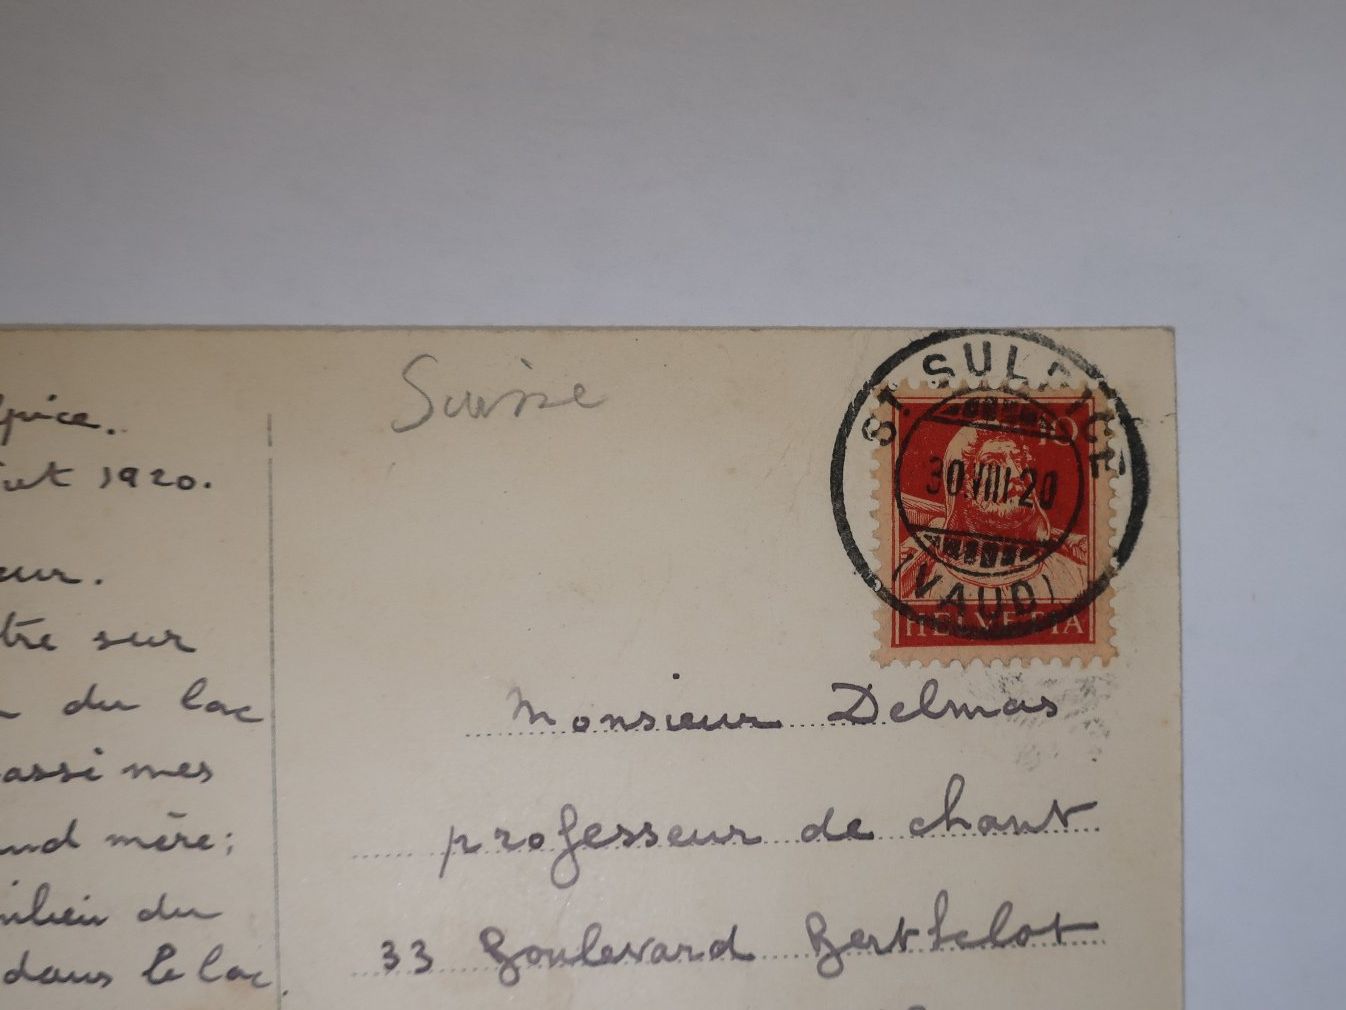 Suisse
ST. SULPICE
10
30.VIII.20
(VAUD)
HELVETIA
pice.
1920.
eur.
tre sur
du lac
assi mes
nd mère;
milieu du
dans le lac
Monsieur Delmas
professeur de chant
33 Boulevard Berthelot